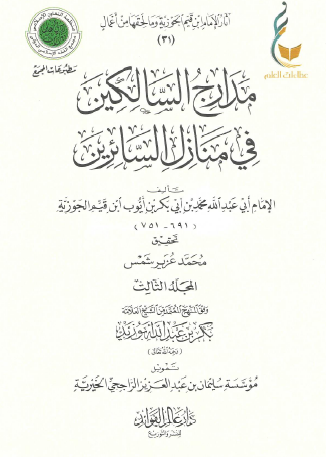 آثار الإمام ابن قيم الجوزية وما لحقها من أعمال
(٣١)
مطبوعات المجمع
عطاءات العلم
مدارج السالكين
في منازل السائرين
تأليف
الإمام أبي عبد الله محمد بن أبي بكر بن أيوب ابن قيم الجوزية
(٦٩١ - ٧٥١)
تحقيق
محمد عزير شمس
المجلد الثالث
وفق المنهج المعتمد من الشيخ العلامة
بكر بن عبد الله أبو زيد
(رحمه الله تعالى)
تمويل
مؤسسة سليمان بن عبد العزيز الراجحي الخيرية
دار عالم الفوائد
للنشر والتوزيع